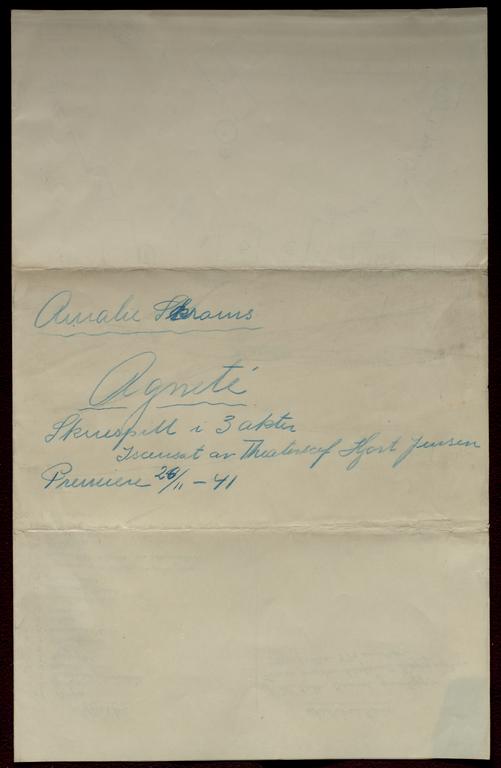 Amalie Skrams
Agnete
Skuespill i 3 akter
Iscensat av Theaterchef Hjort Jensen
Premiere 26/11 - 41